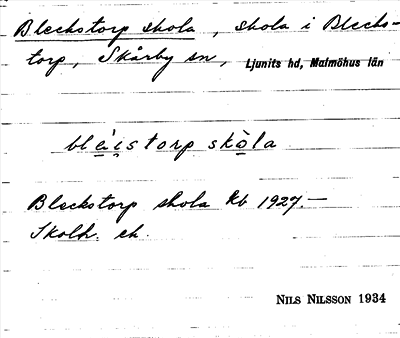 Bleckstorp skola, skola i Blecks-
torp, Skårby sn, Ljunits hd, Malmöhus län
blèi̯storp skòla
Bleckstorp skola Kb 1927.—
Skolh. ek.
NILS NILSSON 1934